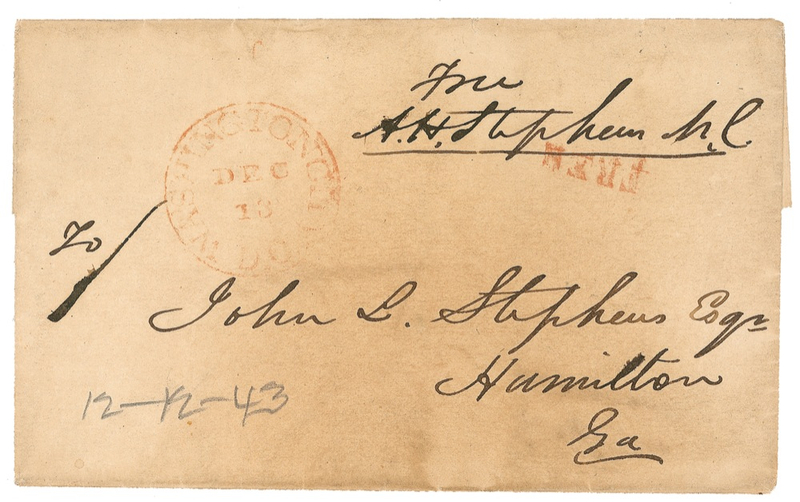 Free
A.H. Stephens M.C.
WASHINGTON CITY D.C.
DEC
13
FREE
To
John L. Stephens Esqr
Hamilton
Ga
12-12-43